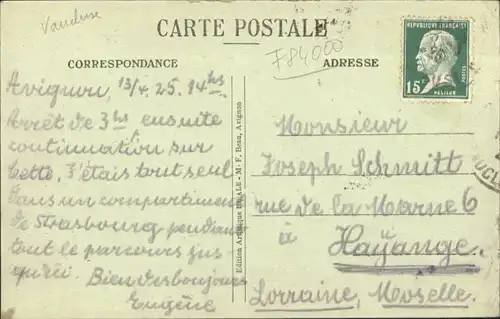 Vaucluse
CARTE POSTALE
F84000
CORRESPONDANCE
ADRESSE
REPUBLIQUE FRANÇAISE
15c
POSTES
PASTEUR
Avignon, 13/4. 25. 14hs
Arrêt de 3hs ensuite
continuation sur
Cette, J'étais tout seul
dans un compartiment
de Strasbourg pendant
tout le parcours jus
qu'ici. Bien des bonjours
Eugène
Edition Artistique - M. F. Beau, Avignon
Monsieur
Joseph Schmitt
rue de la Marne 6
à Hayange.
Lorraine, Moselle.